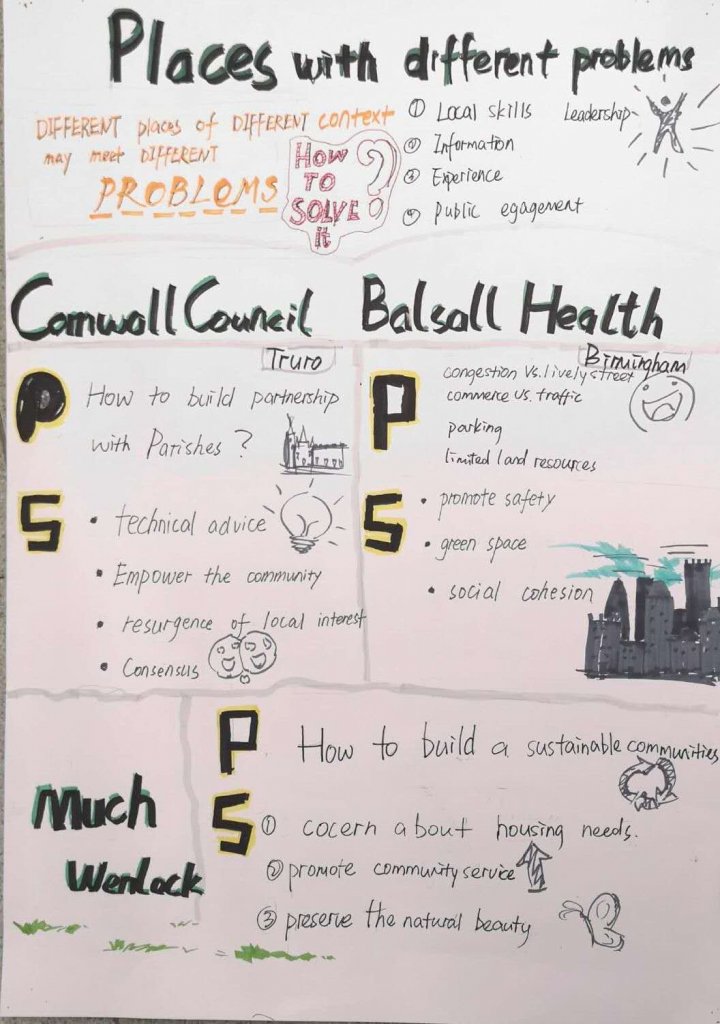 Places with different problems
DIFFERENT places of DIFFERENT context
may meet DIFFERENT
PROBLOMS
HOW
TO
SOLVE
it
?
① Local skills Leadership
② Information
③ Experience
④ Public egagement
Cornwall Council
Truro
P
How to build partnership
with Parishes ?
S
• technical advice
• Empower the community
• resurgence of local interest
• Consensus
Balsall Health
Birmingham
P
congestion Vs. lively street
commerce Vs. traffic
parking
limited land resources
S
• promote safety
• green space
• social cohesion
Much
Wenlock
P
How to build a sustainable communities
S
① cocern about housing needs.
② promote community service
③ preserve the natural beauty